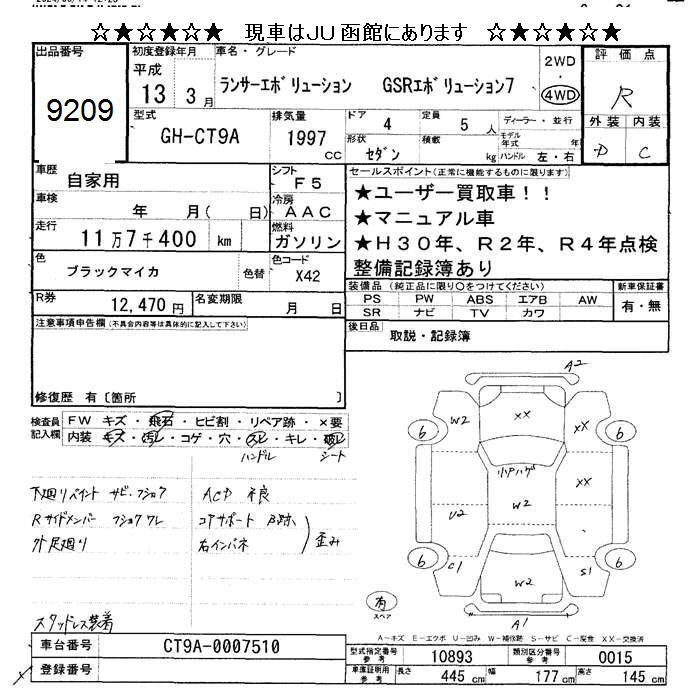 ☆★☆★☆★ 現車はJU函館にあります ☆★☆★☆★
出品番号
9209
初度登録年月
平成
13 3月
車名・グレード
ランサーエボリューション GSRエボリューション7
2WD
・
4WD
評価点
R
外装 内装
D C
型式
GH-CT9A
排気量
1997
cc
ドア
4
定員
5人
形状
セダン
積載
kg
ディーラー・並行
モデル年式 年
ハンドル 左・右
車歴
自家用
シフト
F5
車検
年 月( 日)
冷房
AAC
走行
11万7千400 km
燃料
ガソリン
色
ブラックマイカ
色替
色コード
X42
R券
12,470円
名変期限
月 日
セールスポイント(正常に機能するものに限ります)
★ユーザー買取車!!
★マニュアル車
★H30年、R2年、R4年点検
整備記録簿あり
装備品 (純正品に限り○をつけてください)
PS PW ABS エアB AW
SR ナビ TV カワ
新車保証書
有・無
後日品
取説・記録簿
注意事項申告欄(不具合内容等は具体的に記入して下さい)
修復歴 有〔箇所 〕
検査員記入欄
FW キズ・飛石・ヒビ割・リペア跡・×要
内装 キズ・汚レ・コゲ・穴・スレ・キレ・破レ
ハンドル シート
下廻りペイント サビ・フショク
Rサイドメンバー フショクワレ
外足廻り
スタッドレス装着
ACP 不良
コアサポート
右インパネ
歪み
A2
W2 XX XX
6 6
小ヘハゲ
XX
W2
U2
C1 S1
6 6
W2
A1
有
スペア
A-キズ E-エクボ U-凹み W-補修跡 S-サビ C-腐食 XX-交換済
車台番号
CT9A-0007510
登録番号
型式指定番号
参考
10893
類別区分番号
参考
0015
車庫証明用
参考
長さ 445cm 幅 177cm 高さ 145cm